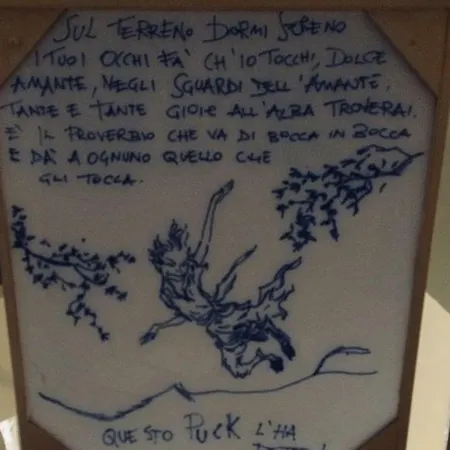 SUL TERRENO DORMI SERENO
I TUOI OCCHI FA' CH'IO TOCCHI, DOLCE
AMANTE, NEGLI SGUARDI DELL'AMANTE.
TANTE E TANTE GIOIE ALL'ALBA TROVERAI.
E' IL PROVERBIO CHE VA DI BOCCA IN BOCCA
E DA' A OGNUNO QUELLO CHE
GLI TOCCA.
QUESTO PUCK L'HA